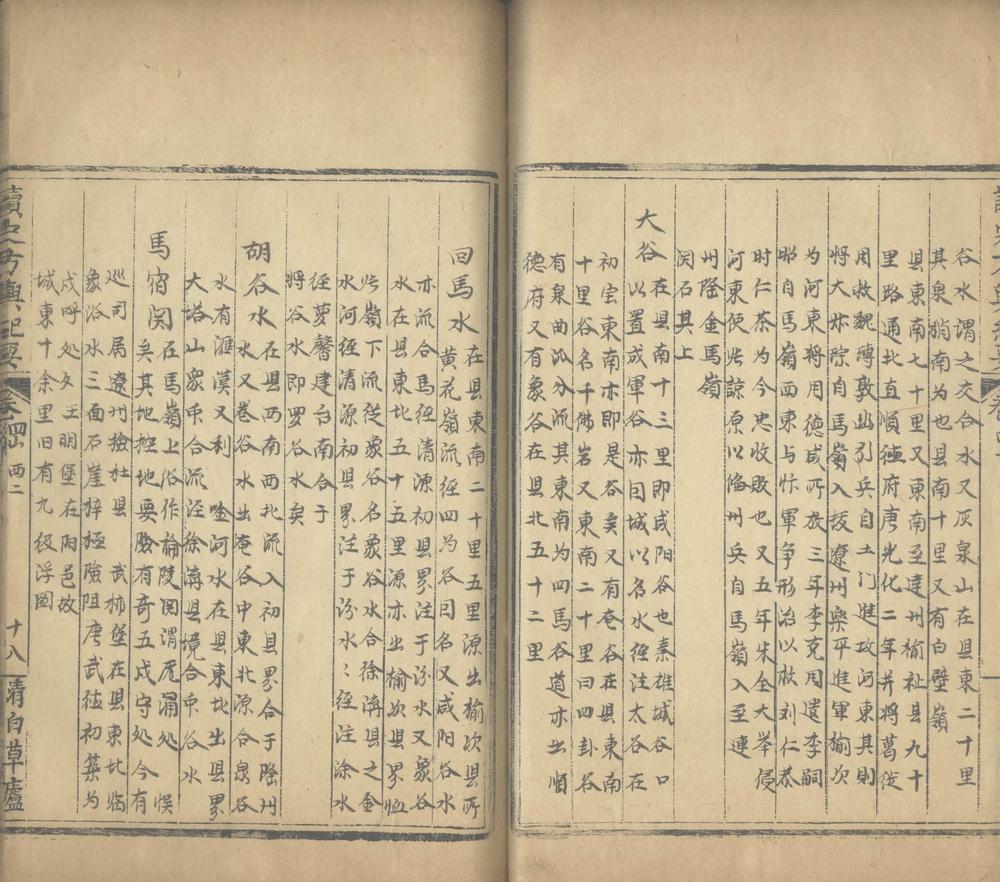 谷水謂之交合水又灰泉山在县東二十里
其泉稍南为也县南十里又有白壁嶺
县東南七十里又東南至達州榆社县九十
里路通北直順德府唐光化二年并将葛従
周救魏博敦幽引兵自土门進攻河東其則
将大炑踪自馬嶺入抜遼州樂平進軍榆次
为河東将周德威所放三年李克用遣李嗣
昭自馬嶺西東与忭軍争形治以救刘仁恭
时仁恭为今忠收敗也又五年朱全大举侵
河東使
州陸金馬嶺
関石其上
大谷 在县南十三里即咸阳谷也秦雄城谷口
以置戍軍谷亦因城以名水徑注太谷在
初宝東南亦即是谷矣又有奄谷在县東南
十里谷名千佛岩又東南二十里曰四卦谷
有泉曲㳂分流其東南为四馬谷道亦出順
德府又有象谷在县北五十二里
回馬水 在县東南二十里五里源出榆次县所
黄花嶺流经四为谷曰名又咸阳谷水
亦流合馬经清源初县界注于汾水又象谷
水在县東北五十五里源亦出榆次县界
嶺下流従象谷名象谷水合徐溝县之金
水河经清源初县界注于汾水〻经注涂水
径萝馨建台南合于
将谷水即罗谷水矣
胡谷水 在县西南西北流入初县界合于陰州
水又巻谷水出奄谷中東北源合泉谷
水有滙漢又利 唫河水在县東北出县界
大塔山衆帀合流迳徐溝县境合中谷水
馬宿関 在馬嶺上俗作論陵関谓尾漏处悮
矣其地控地要险有奇五戍守処今有
巡司局遼州撿杜县 武柿堡在县東北临
象浴水三面石崖梓極險阻唐武徳初築为
戍呼処攵王明堡在阳邑故
城東十余里旧有九级浮圖
讀史方輿紀要 卷 四 西二 十八 清白草廬